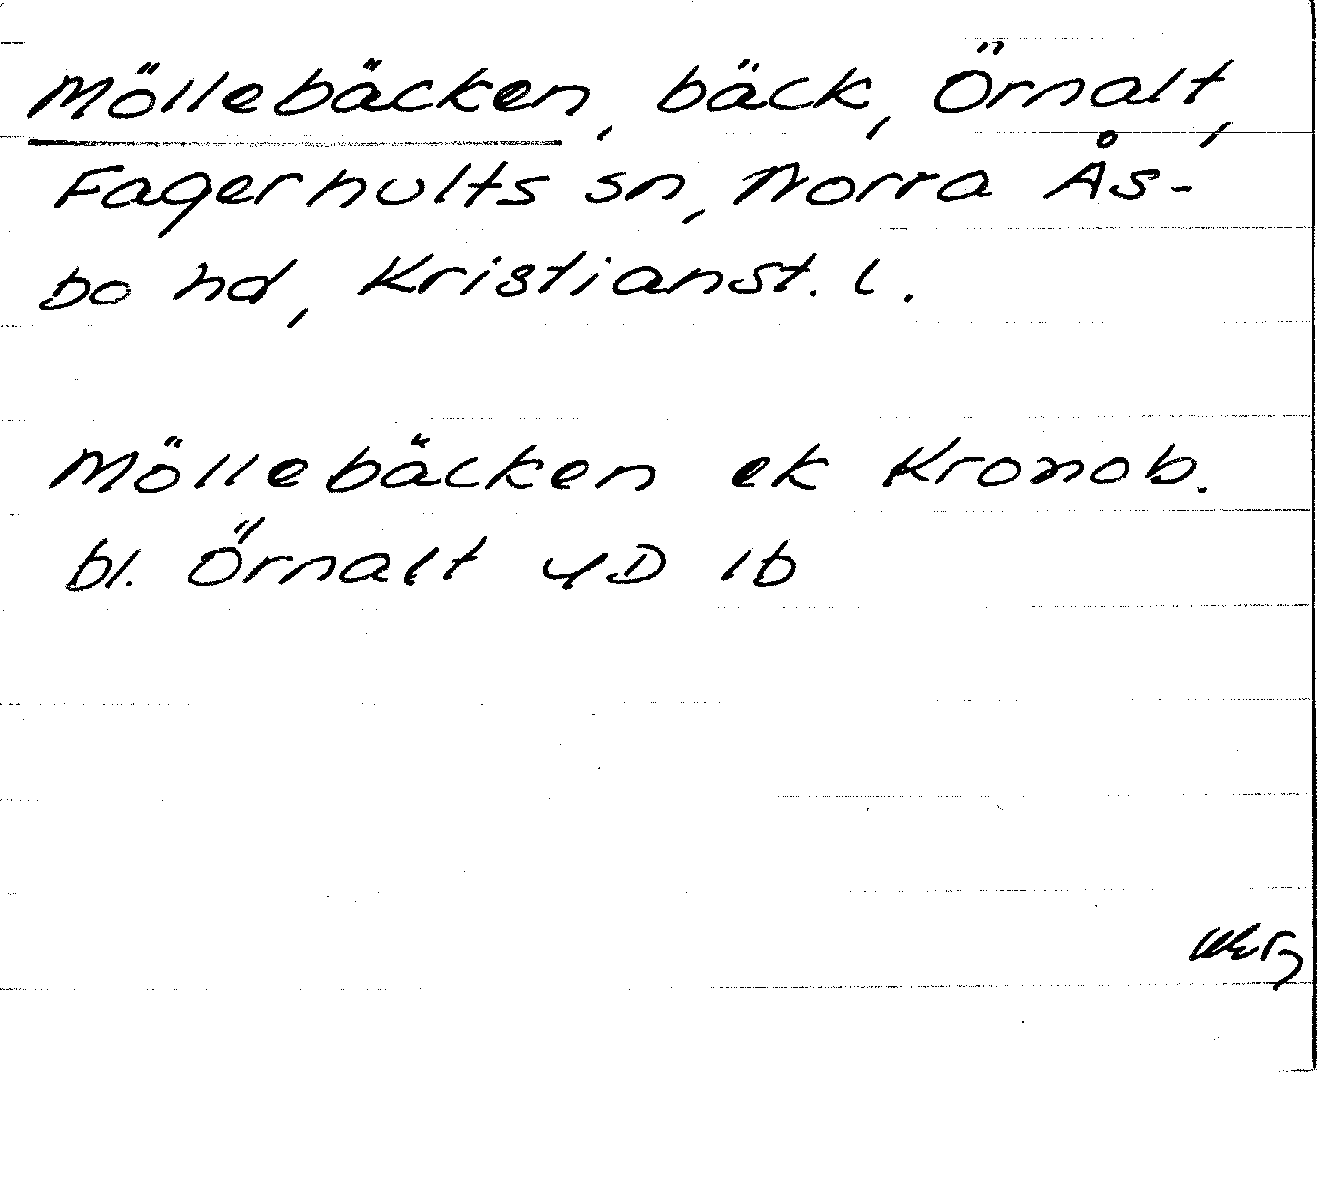 Möllebäcken, bäck, Örnalt,
Fagerhults sn, Norra Ås-
bo hd, Kristianst. l.
Möllebäcken ek Kronob.
bl. Örnalt 4D 1b